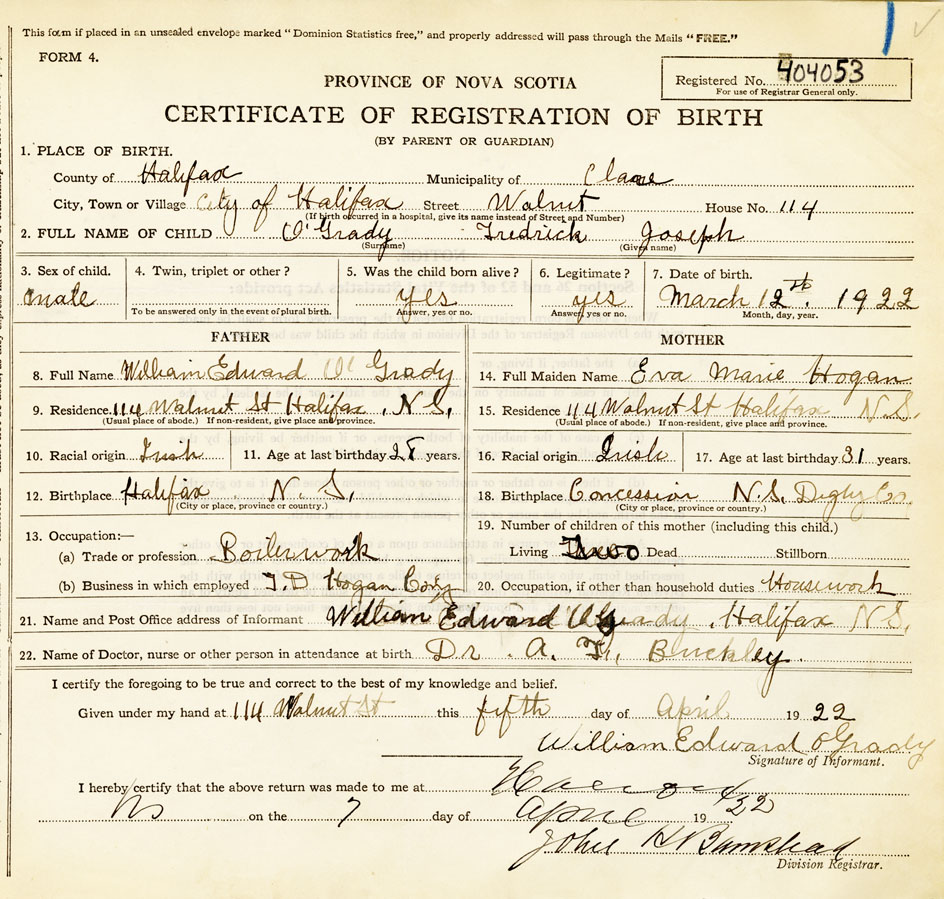 This form if placed in an unsealed envelope marked "Dominion Statistics free," and properly addressed will pass through the Mails "FREE."
FORM 4.
Registered No. 404053
For use of Registrar General only.
PROVINCE OF NOVA SCOTIA
CERTIFICATE OF REGISTRATION OF BIRTH
(BY PARENT OR GUARDIAN)
1. PLACE OF BIRTH.
County of Halifax Municipality of
City, Town or Village City of Halifax Street Walnut House No. 114
(If birth occurred in a hospital, give its name instead of Street and Number)
2. FULL NAME OF CHILD O'Grady Fredrick Joseph
(Surname) (Given name)
3. Sex of child. 4. Twin, triplet or other? 5. Was the child born alive? 6. Legitimate? 7. Date of birth.
male yes yes March 12th. 1922
To be answered only in the event of plural birth. Answer, yes or no. Answer, yes or no. Month, day, year.
FATHER MOTHER
8. Full Name William Edward O'Grady 14. Full Maiden Name Eva Marie Hogan
9. Residence. 114 Walnut St Halifax. N.S. 15. Residence 114 Walnut St Halifax N.S.
(Usual place of abode.) If non-resident, give place and province. (Usual place of abode.) If non-resident, give place and province.
10. Racial origin Irish 11. Age at last birthday 28 years. 16. Racial origin Irish 17. Age at last birthday 31 years.
12. Birthplace Halifax. N. S. 18. Birthplace Concession N.S. Digby Co.
(City or place, province or country.) (City or place, province or country.)
13. Occupation:— 19. Number of children of this mother (including this child.)
(a) Trade or profession Boilerwork Living Two Dead Stillborn
(b) Business in which employed Hogan 20. Occupation, if other than household duties Housework
21. Name and Post Office address of Informant William Edward O'Grady. Halifax N.S.
22. Name of Doctor, nurse or other person in attendance at birth Dr. A. Buckley.
I certify the foregoing to be true and correct to the best of my knowledge and belief.
Given under my hand at 114 Walnut St this fifth day of April 1922
William Edward O'Grady
Signature of Informant.
I hereby certify that the above return was made to me at
NS on the 7 day of April 1922
John H Barnstead
Division Registrar.